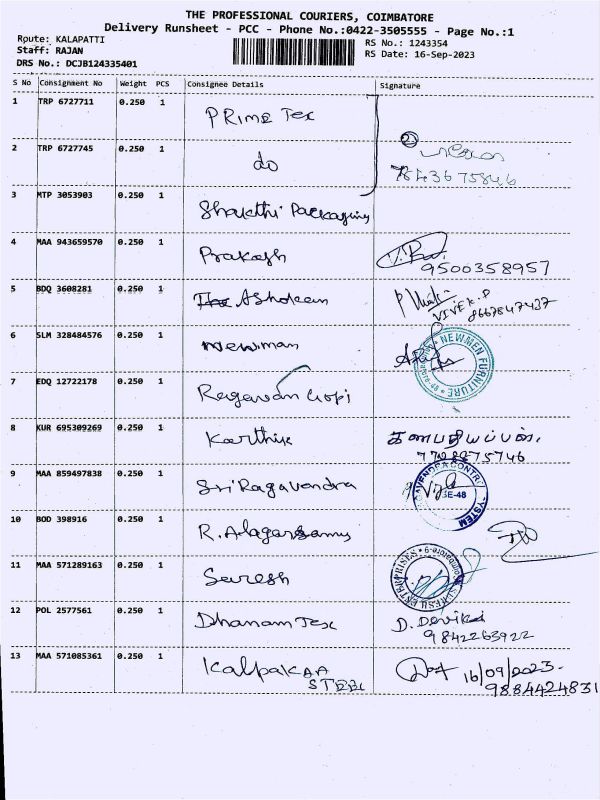 THE PROFESSIONAL COURIERS, COIMBATORE
Delivery Runsheet - PCC - Phone No.:0422-3505555 - Page No.:1
Route: KALAPATTI
RS No.: 1243354
Staff: RAJAN
RS Date: 16-Sep-2023
DRS No.: DCJB124335401
S No Consignment No Weight PCS Consignee Details Signature
1 TRP 6727711 0.250 1 Prime Tex
2 TRP 6727745 0.250 1 do
7843675846
3 MTP 3053903 0.250 1 Shakthi Packaging
4 MAA 943659570 0.250 1 Prakash
9500358957
5 BDQ 3608281 0.250 1 Ashokan
VIVEK.P
8667847437
6 SLM 328484576 0.250 1 Newman
NEWMEN FURNITURE
7 EDQ 12722178 0.250 1 Ragavan Gopi
8 KUR 695309269 0.250 1 Karthik கணபதியப்பன்.
9 MAA 859497838 0.250 1 Sri Ragavendra
SE-48
10 BOD 398916 0.250 1 R. Alagarsamy
11 MAA 571289163 0.250 1 Suresh
ENTERPRISES
12 POL 2577561 0.250 1 Dhanam Tex D. Devika
9842263922
13 MAA 571085361 0.250 1 Kalpakaa
STEEL
16/09/2023.
9884424831